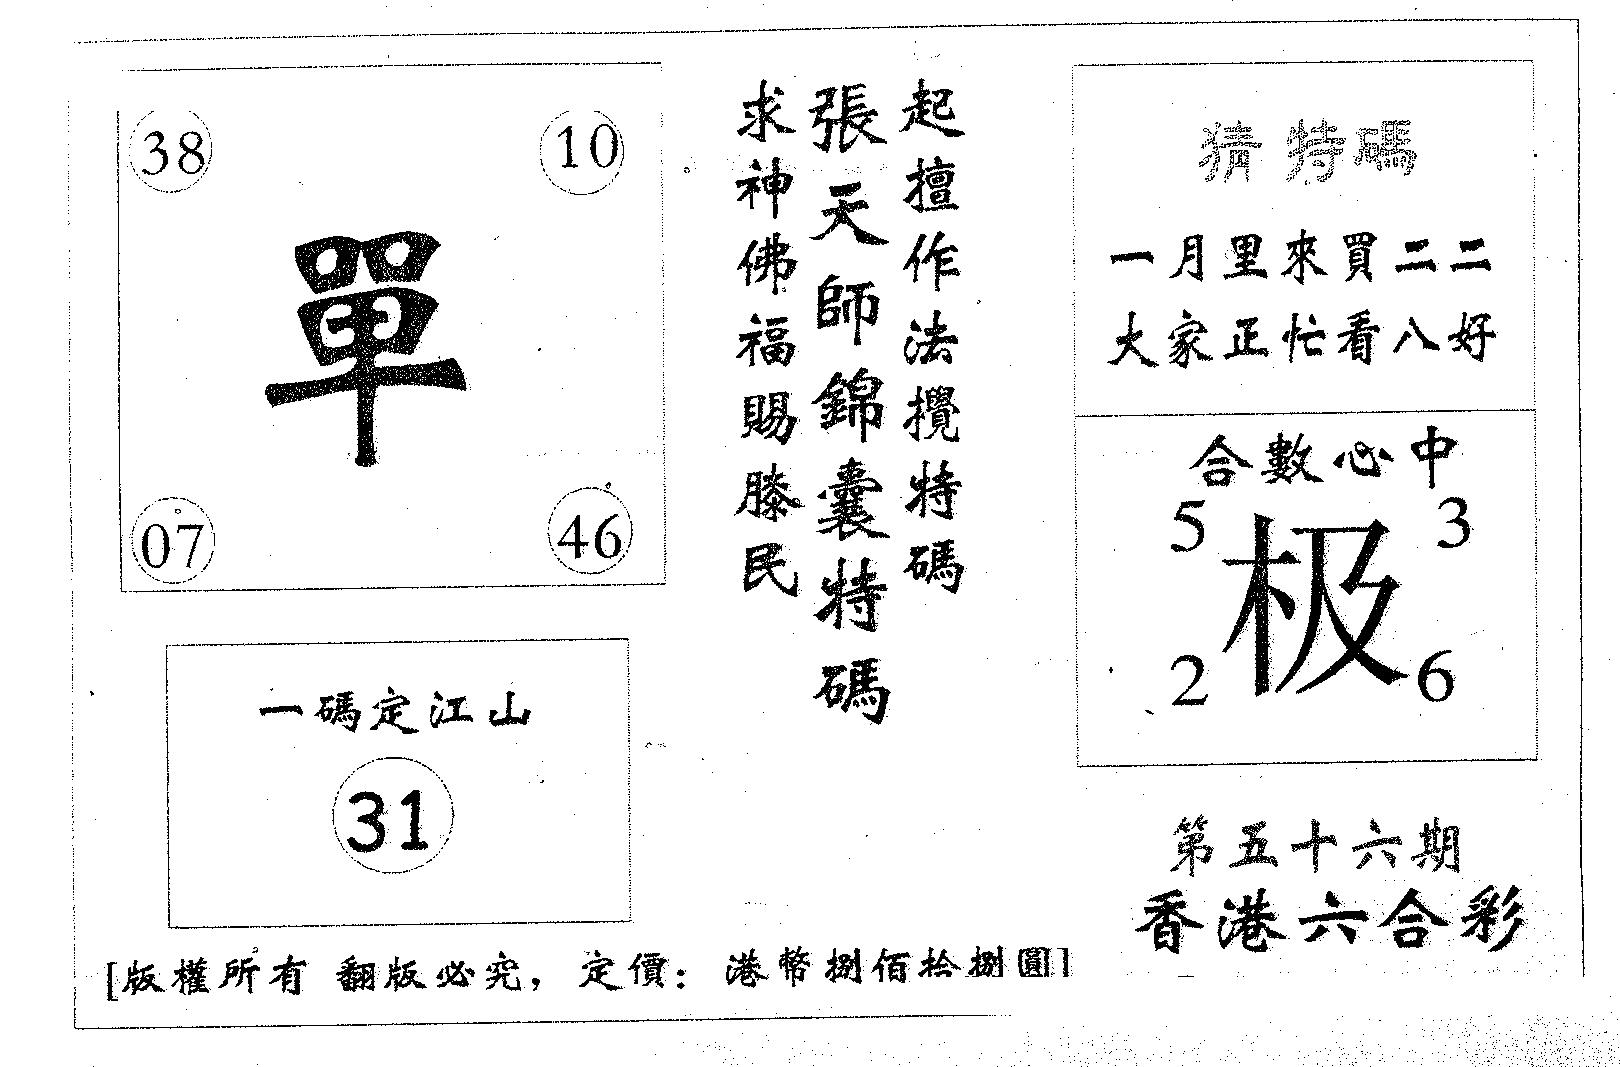 38 10
單
07 46
一碼定江山
31
起擅作法攪特碼
張天師錦囊特碼
求神佛福賜滕民
猜特碼
一月里來買二二
大家正忙看八好
合數心中
5 3
极
2 6
第五十六期
香港六合彩
[版權所有 翻版必究，定價：港幣捌佰拾捌圓]